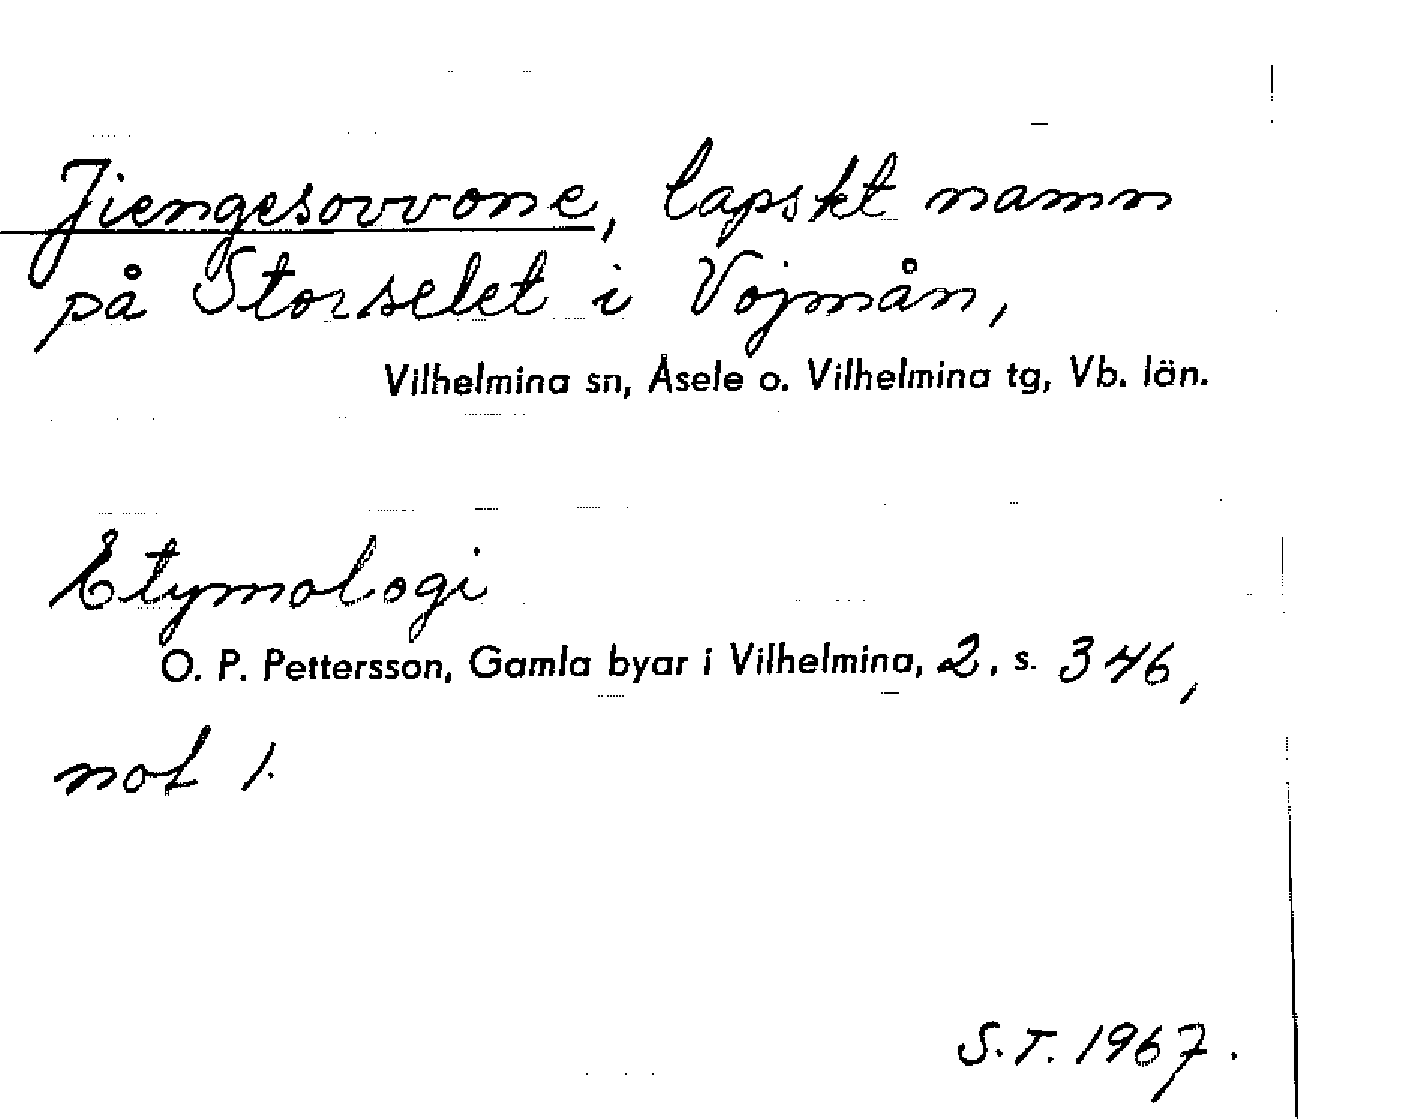 Jiengesovvone, lapskt namn
på Storselet i Vojmån,
Vilhelmina sn, Åsele o. Vilhelmina tg, Vb. län.
Etymologi
O. P. Pettersson, Gamla byar i Vilhelmina, 2. s. 346,
not 1.
S.T. 1967.